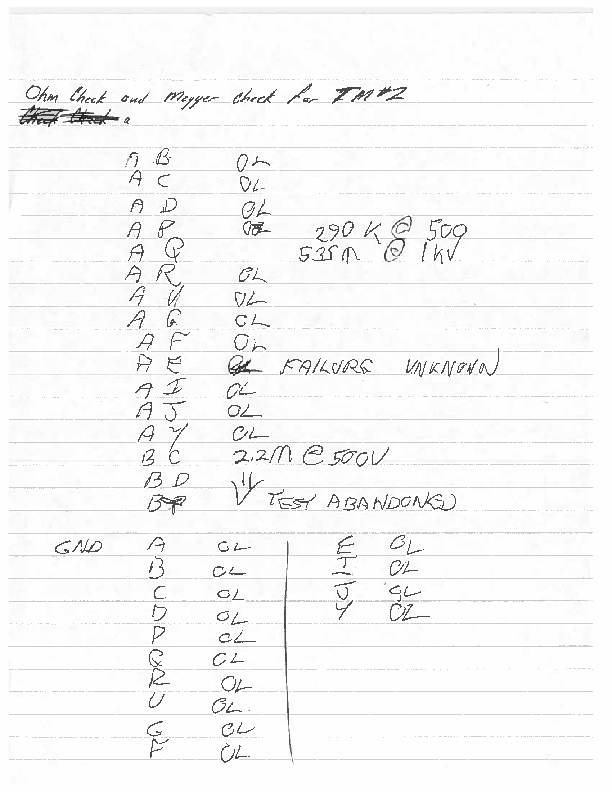 Ohm Check and Megger Check for TM#2
A B OL
A C OL
A D OL
A P 290 K @ 500
A Q 535M @ 1kV
A R OL
A U OL
A G OL
A F OL
A E FAILURE UNKNOWN
A I OL
A J OL
A Y OL
B C 2.2M @ 500V
B D "
B TEST ABANDONED
GND A OL
B OL
C OL
D OL
P OL
Q OL
R OL
U OL
G OL
F OL
E OL
I OL
J OL
Y OL